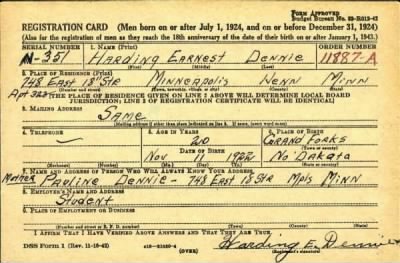 Form Approved
Budget Bureau No. 33-R012-42
REGISTRATION CARD (Men born on or after July 1, 1924, and on or before December 31, 1924)
(Also for the registration of men as they reach the 18th anniversary of the date of their birth on or after January 1, 1943.)
SERIAL NUMBER 1. NAME (Print) ORDER NUMBER
N-351 HARDING EARNEST DENNIE 11887-A
(First) (Middle) (Last)
2. PLACE OF RESIDENCE (Print)
748 EAST 18 STR MINNEAPOLIS HENN MINN
Apt 322
(THE PLACE OF RESIDENCE GIVEN ON LINE 2 ABOVE WILL DETERMINE LOCAL BOARD
JURISDICTION; LINE 2 OF REGISTRATION CERTIFICATE WILL BE IDENTICAL)
3. MAILING ADDRESS
SAME
(Mailing address if other than place indicated on line 2. If same, insert word same)
4. TELEPHONE 5. AGE IN YEARS 6. PLACE OF BIRTH
— 20 GRAND FORKS
DATE OF BIRTH (Town or county)
Nov 11 1922 No. Dakota
(Exchange) (Number) (Mo.) (Day) (Yr.) (State or country)
7. NAME AND ADDRESS OF PERSON WHO WILL ALWAYS KNOW YOUR ADDRESS
Mother Pauline Dennie - 748 East 18 Str Mpls Minn
8. EMPLOYER'S NAME AND ADDRESS
Student
9. PLACE OF EMPLOYMENT OR BUSINESS
(Number and street or R. F. D. number) (Town) (County) (State)
I AFFIRM THAT I HAVE VERIFIED ABOVE ANSWERS AND THAT THEY ARE TRUE.
DSS Form 1 (Rev. 11-16-42) (OVER) Harding E. Dennie